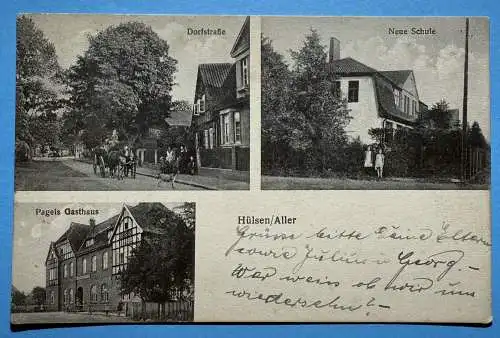 Dorfstraße
Neue Schule
Pagels Gasthaus
Hülsen/Aller
Grüsse bitte Deine Eltern
sowie Julius u. Georg. –
Wer weiss ob wir uns
wiedersehn! –